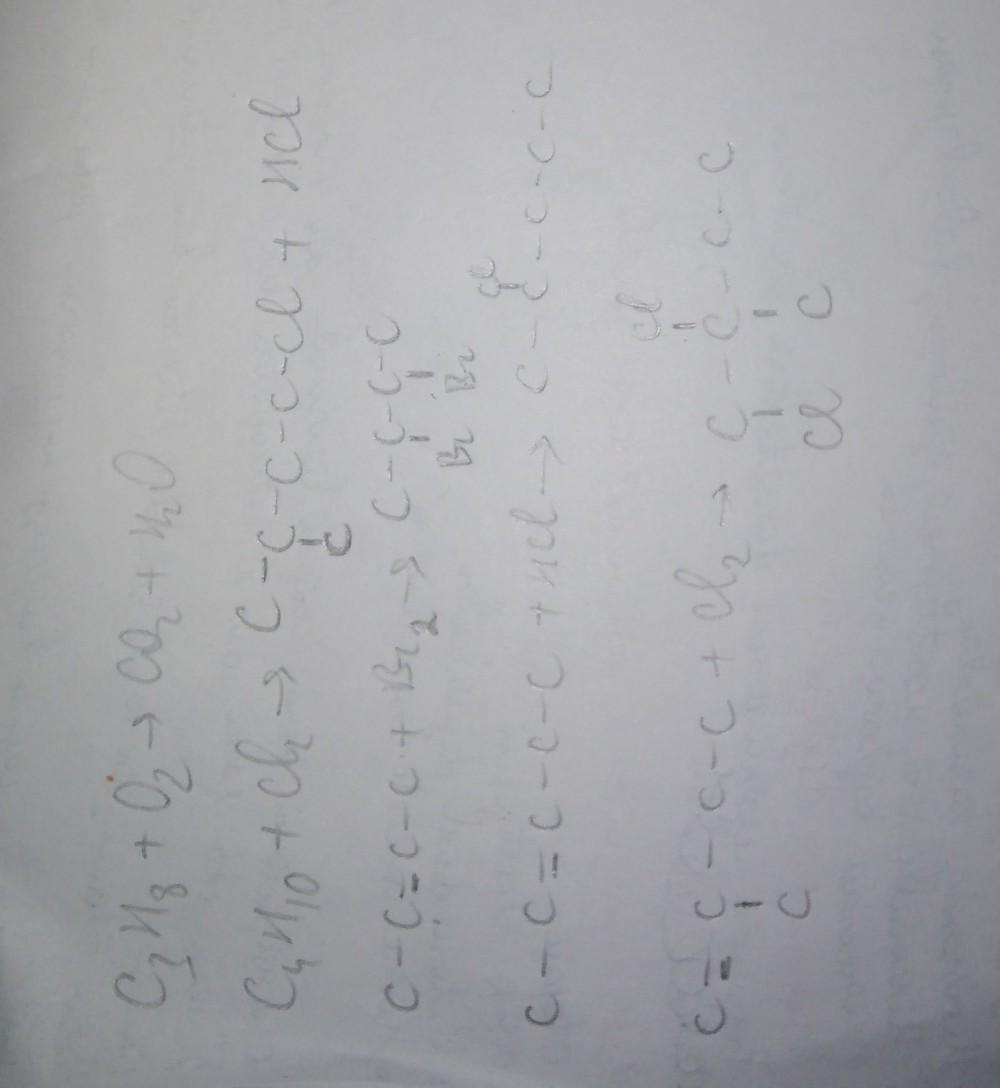 C₃H₈ + O₂ → CO₂ + H₂O
C₄H₁₀ + Cl₂ → C-C-C-C-Cl + HCl
C
C-C=C-C + Br₂ → C-C-C-C
Br Br
Cl
C-C=C-C-C + HCl → C-C-C-C-C
Cl
C=C-C-C + Cl₂ → C-C-C-C
C Cl C